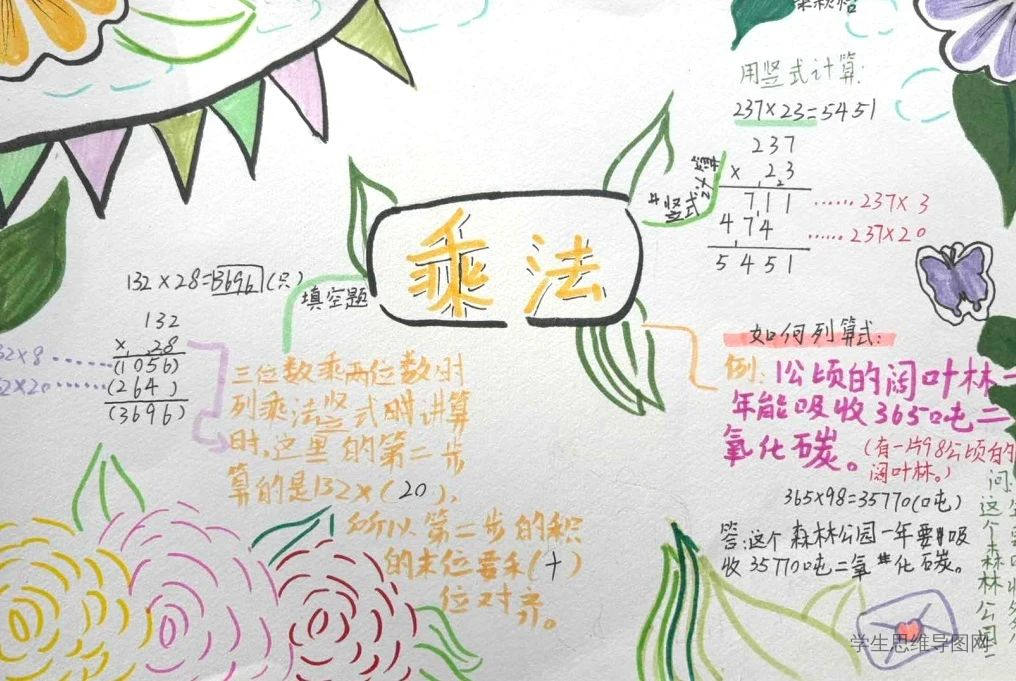 用竖式计算:
237×23=5451
237
× 23
711 ……237×3
474 ……237×20
5451
乘法
填空题
132×28=3696(只)
132
× 28
(1056)
(264)
(3696)
三位数乘两位数时
列乘法竖式
时,这里的第二步
算的是132×(20),
所以第二步的积
的末位要
(十)
位对齐。
如何列算式:
例:1公顷的阔叶林一
年能吸收365吨二
氧化石炭。
(有一片98公顷的
阔叶林。)
365×98=35770(吨)
答:这个森林公园一年要吸
收35770吨二氧化石炭。
问:
这个森林公园
学生思维导图网